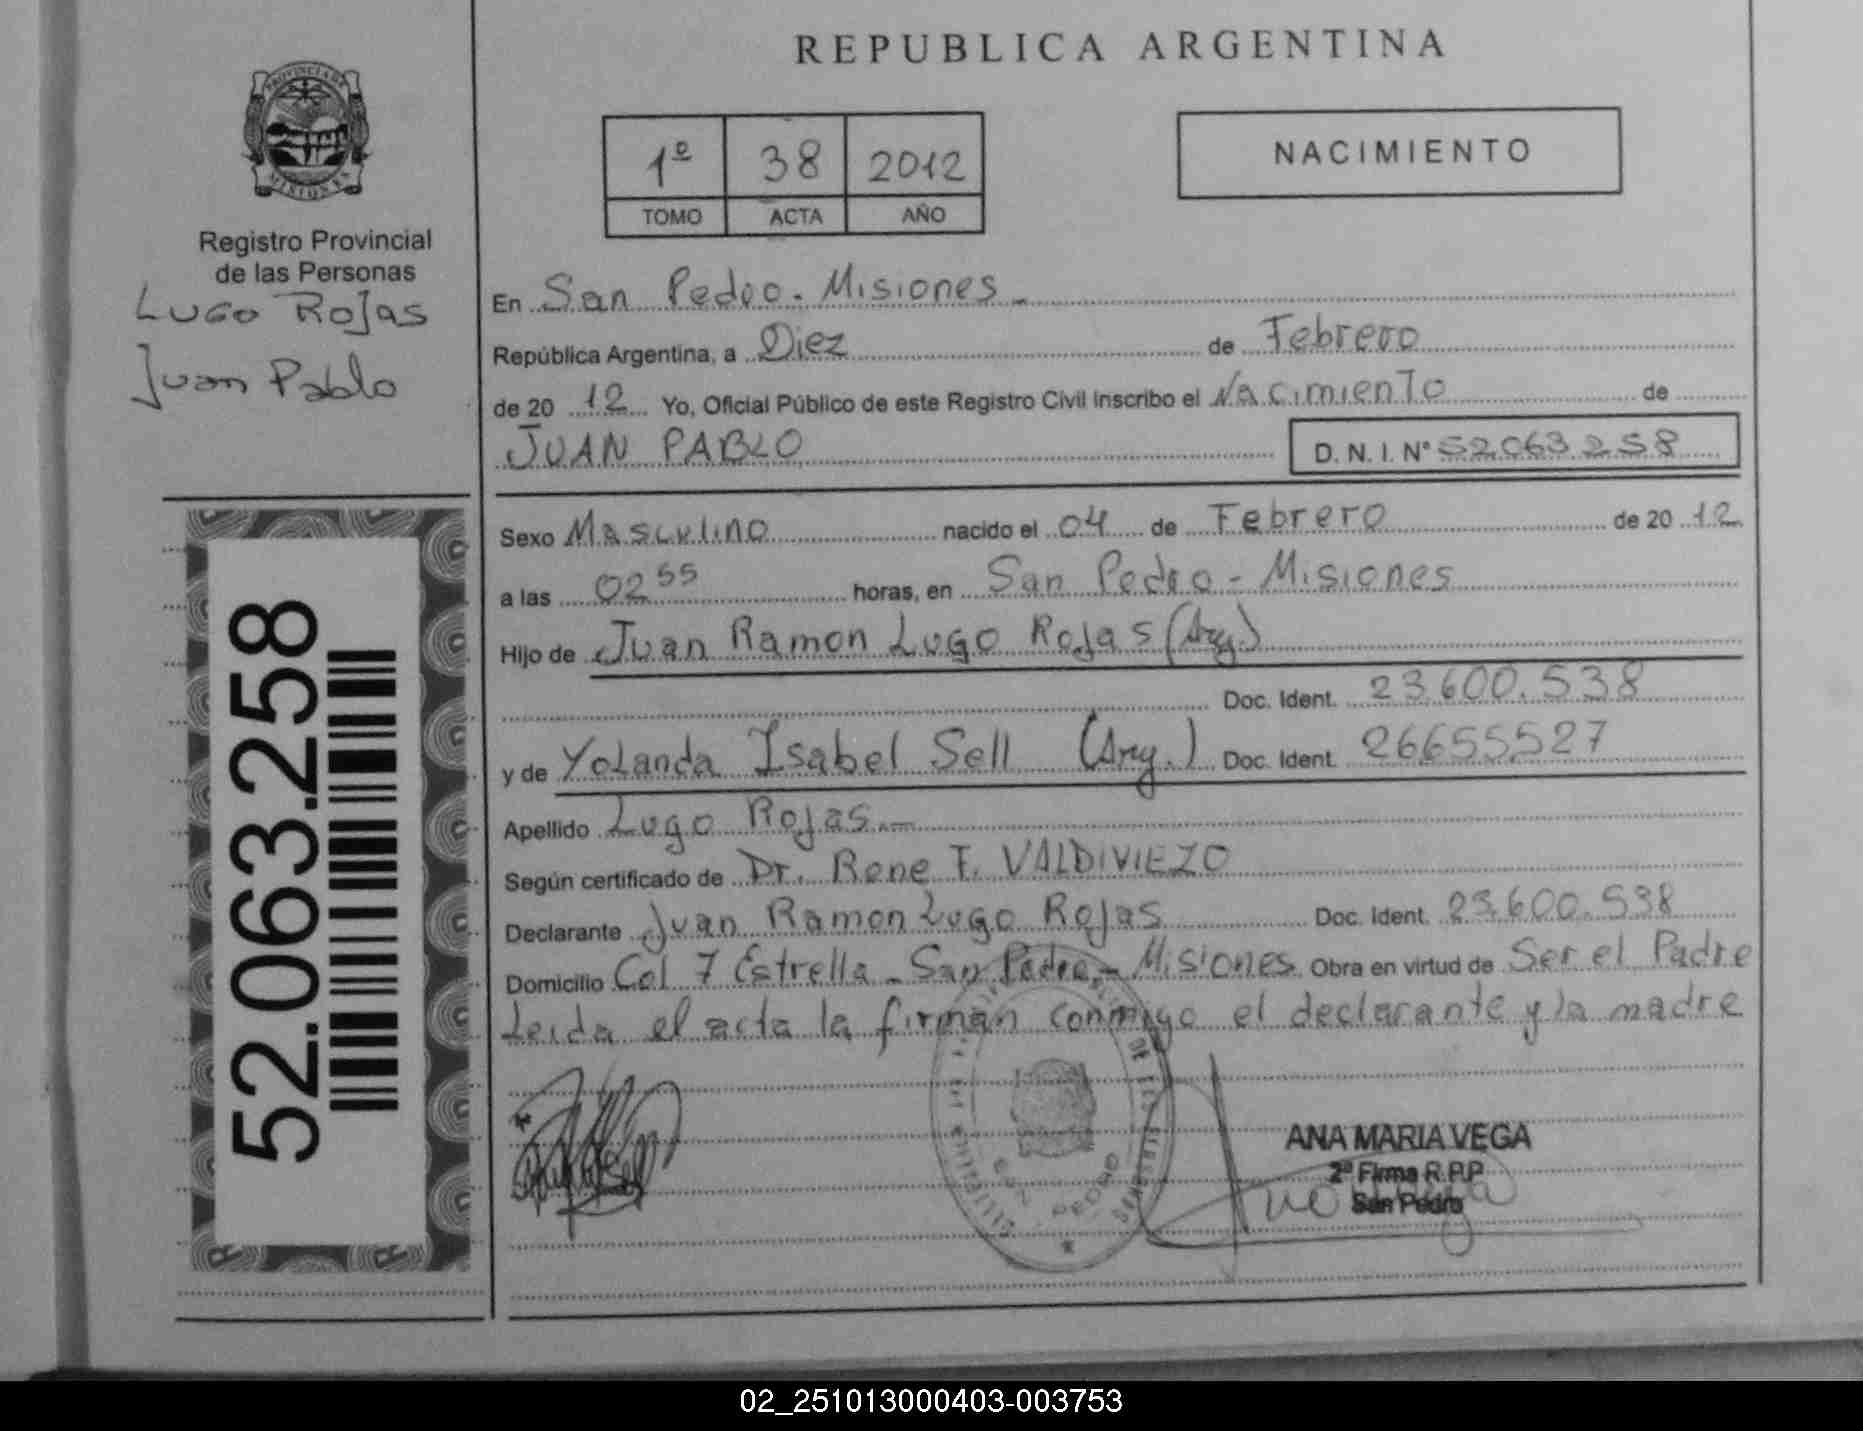 REPUBLICA ARGENTINA
PROVINCIA DE
MISIONES
Registro Provincial
de las Personas
Lugo Rojas
Juan Pablo
1º 38 2012
TOMO ACTA AÑO
NACIMIENTO
En San Pedro - Misiones
República Argentina, a Diez de Febrero
de 20 12 Yo, Oficial Público de este Registro Civil inscribo el Nacimiento de
JUAN PABLO D. N. I. Nº 52063258
Sexo Masculino nacido el 04 de Febrero de 20 12
a las 02 55 horas, en San Pedro - Misiones
Hijo de Juan Ramon Lugo Rojas (Arg.)
Doc. Ident. 23.600.538
y de Yolanda Isabel Sell (Arg.) Doc. Ident. 26655527
Apellido Lugo Rojas
Según certificado de Dr. Rene F. VALDIVIEZO
Declarante Juan Ramon Lugo Rojas Doc. Ident. 23.600.538
Domicilio Col 7 Estrella - San Pedro - Misiones Obra en virtud de Ser el Padre
Leida el acta la firman conmigo el declarante y la madre
52.063.258
SAN PEDRO
ANA MARIA VEGA
2ª Firma R.P.P
San Pedro
02_251013000403-003753